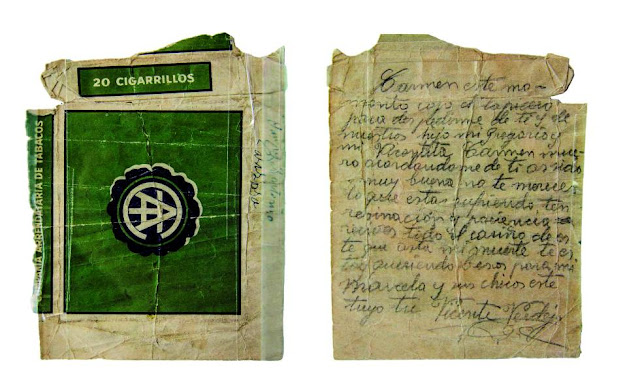 20 CIGARRILLOS
ARRENDATARIA DE TABACOS
Carmen este mo-
mento cojo el lapicero
para despedirme de ti y de
nuestros hijo mi Gregorio y
mi Carmen mue-
ro acordandome de ti as sido
muy buena no te merece
lo que estas sufriendo ten
resinacion y paciencia
recives todo el cariño de es
te que asta mi muerte te es
ta queriendo besos para mi
Marcela y sus chicos este
tuyo Vicente Verdejo